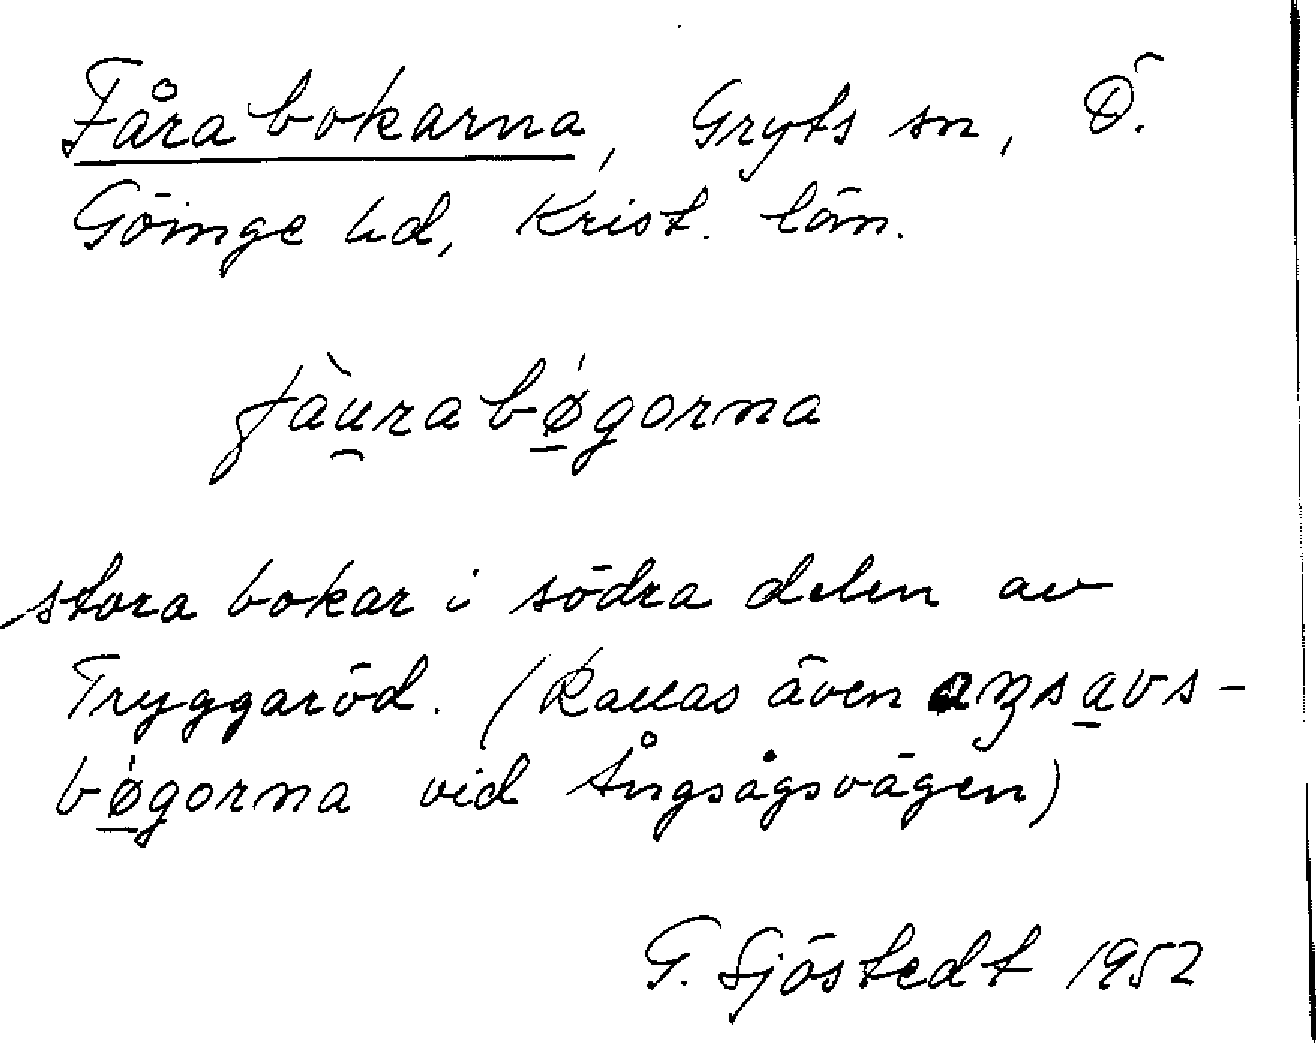 Fårabokarna, Gryts sn, Ö.
Göinge hd, Krist. län.
fàu̯rabǿ̱gorna
stora bokar i södra delen av
Tryggaröd. (Kallas även aŋsa̱vs-
bǿ̱gorna vid Ångsågsvägen)
G. Sjöstedt 1952